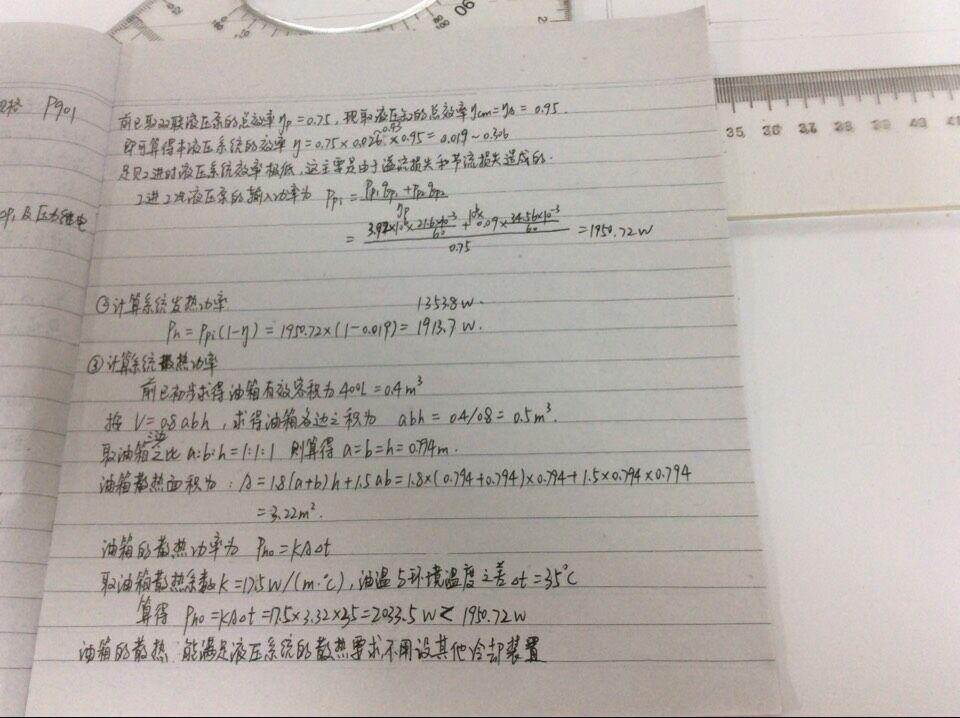 规格 P901
OP₁及压力继电
前已取双联液压泵的总效率ηp=0.75，现取液压缸的总效率ηcm=η=0.95
即可算得本液压系统的效率 η=0.75×0.026×0.95=0.019~0.306
0.43
足见工进时液压系统效率极低，这主要是由于溢流损失和节流损失造成的.
工进工况液压泵的输入功率为 Ppi=(Pp₁qp₁+Pp₂qp₂)/ηp
=(3.97×10⁶×21.6×10⁻³/60+10⁶×0.09×34.56×10⁻³/60)/0.75=1950.72W
②计算系统发热功率 1353.8W.
Ph=Ppi(1-η)=1950.72×(1-0.019)=1913.7W.
③计算系统散热功率
前已初步求得油箱有效容积为400L=0.4m³
按 V=0.8abh，求得油箱各边之积为 abh=0.4/0.8=0.5m³.
取油箱三边之比a:b:h=1:1:1 则算得a=b=h=0.794m.
油箱散热面积为：A=1.8(a+b)h+1.5ab=1.8×(0.794+0.794)×0.794+1.5×0.794×0.794
=3.22m².
油箱的散热功率为 Pho=KAΔt
取油箱散热系数K=17.5W/(m·°C)，油温与环境温度之差Δt=35°C
算得 Pho=KAΔt=17.5×3.32×35=2033.5W<1950.72W
油箱的散热 能满足液压系统的散热要求不用设其他冷却装置
35 36 37 38 39 40 41
90 80